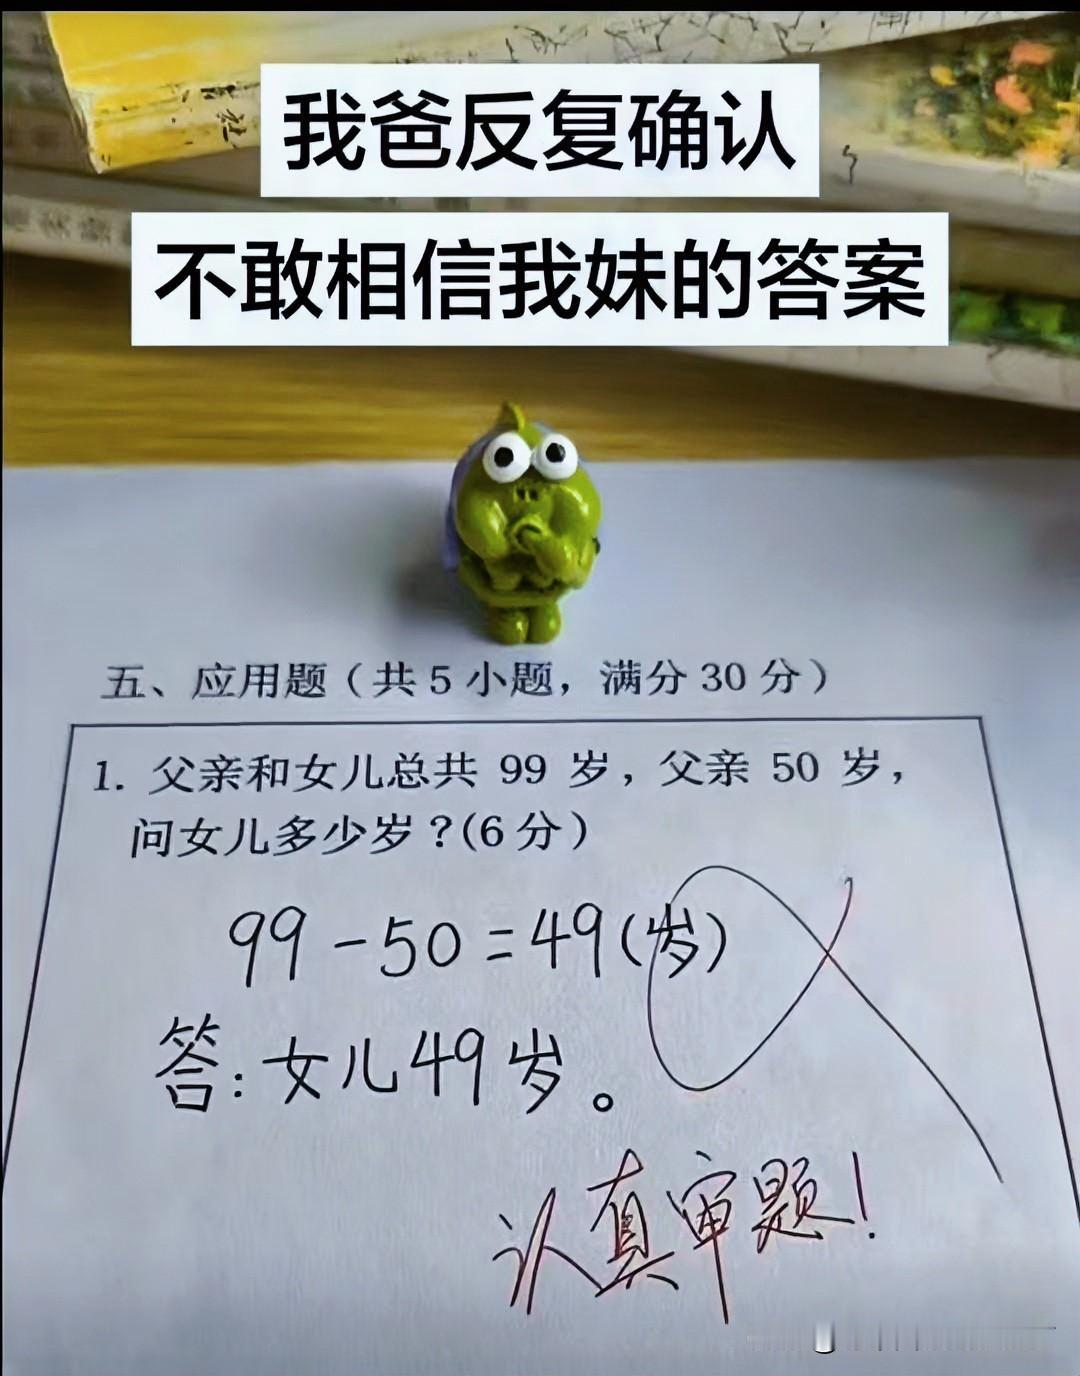 我爸反复确认
不敢相信我妹的答案
五、应用题（共5小题，满分30分）
1. 父亲和女儿总共 99 岁，父亲 50 岁，
问女儿多少岁？(6分)
99-50=49(岁)
答:女儿49岁。
认真审题!